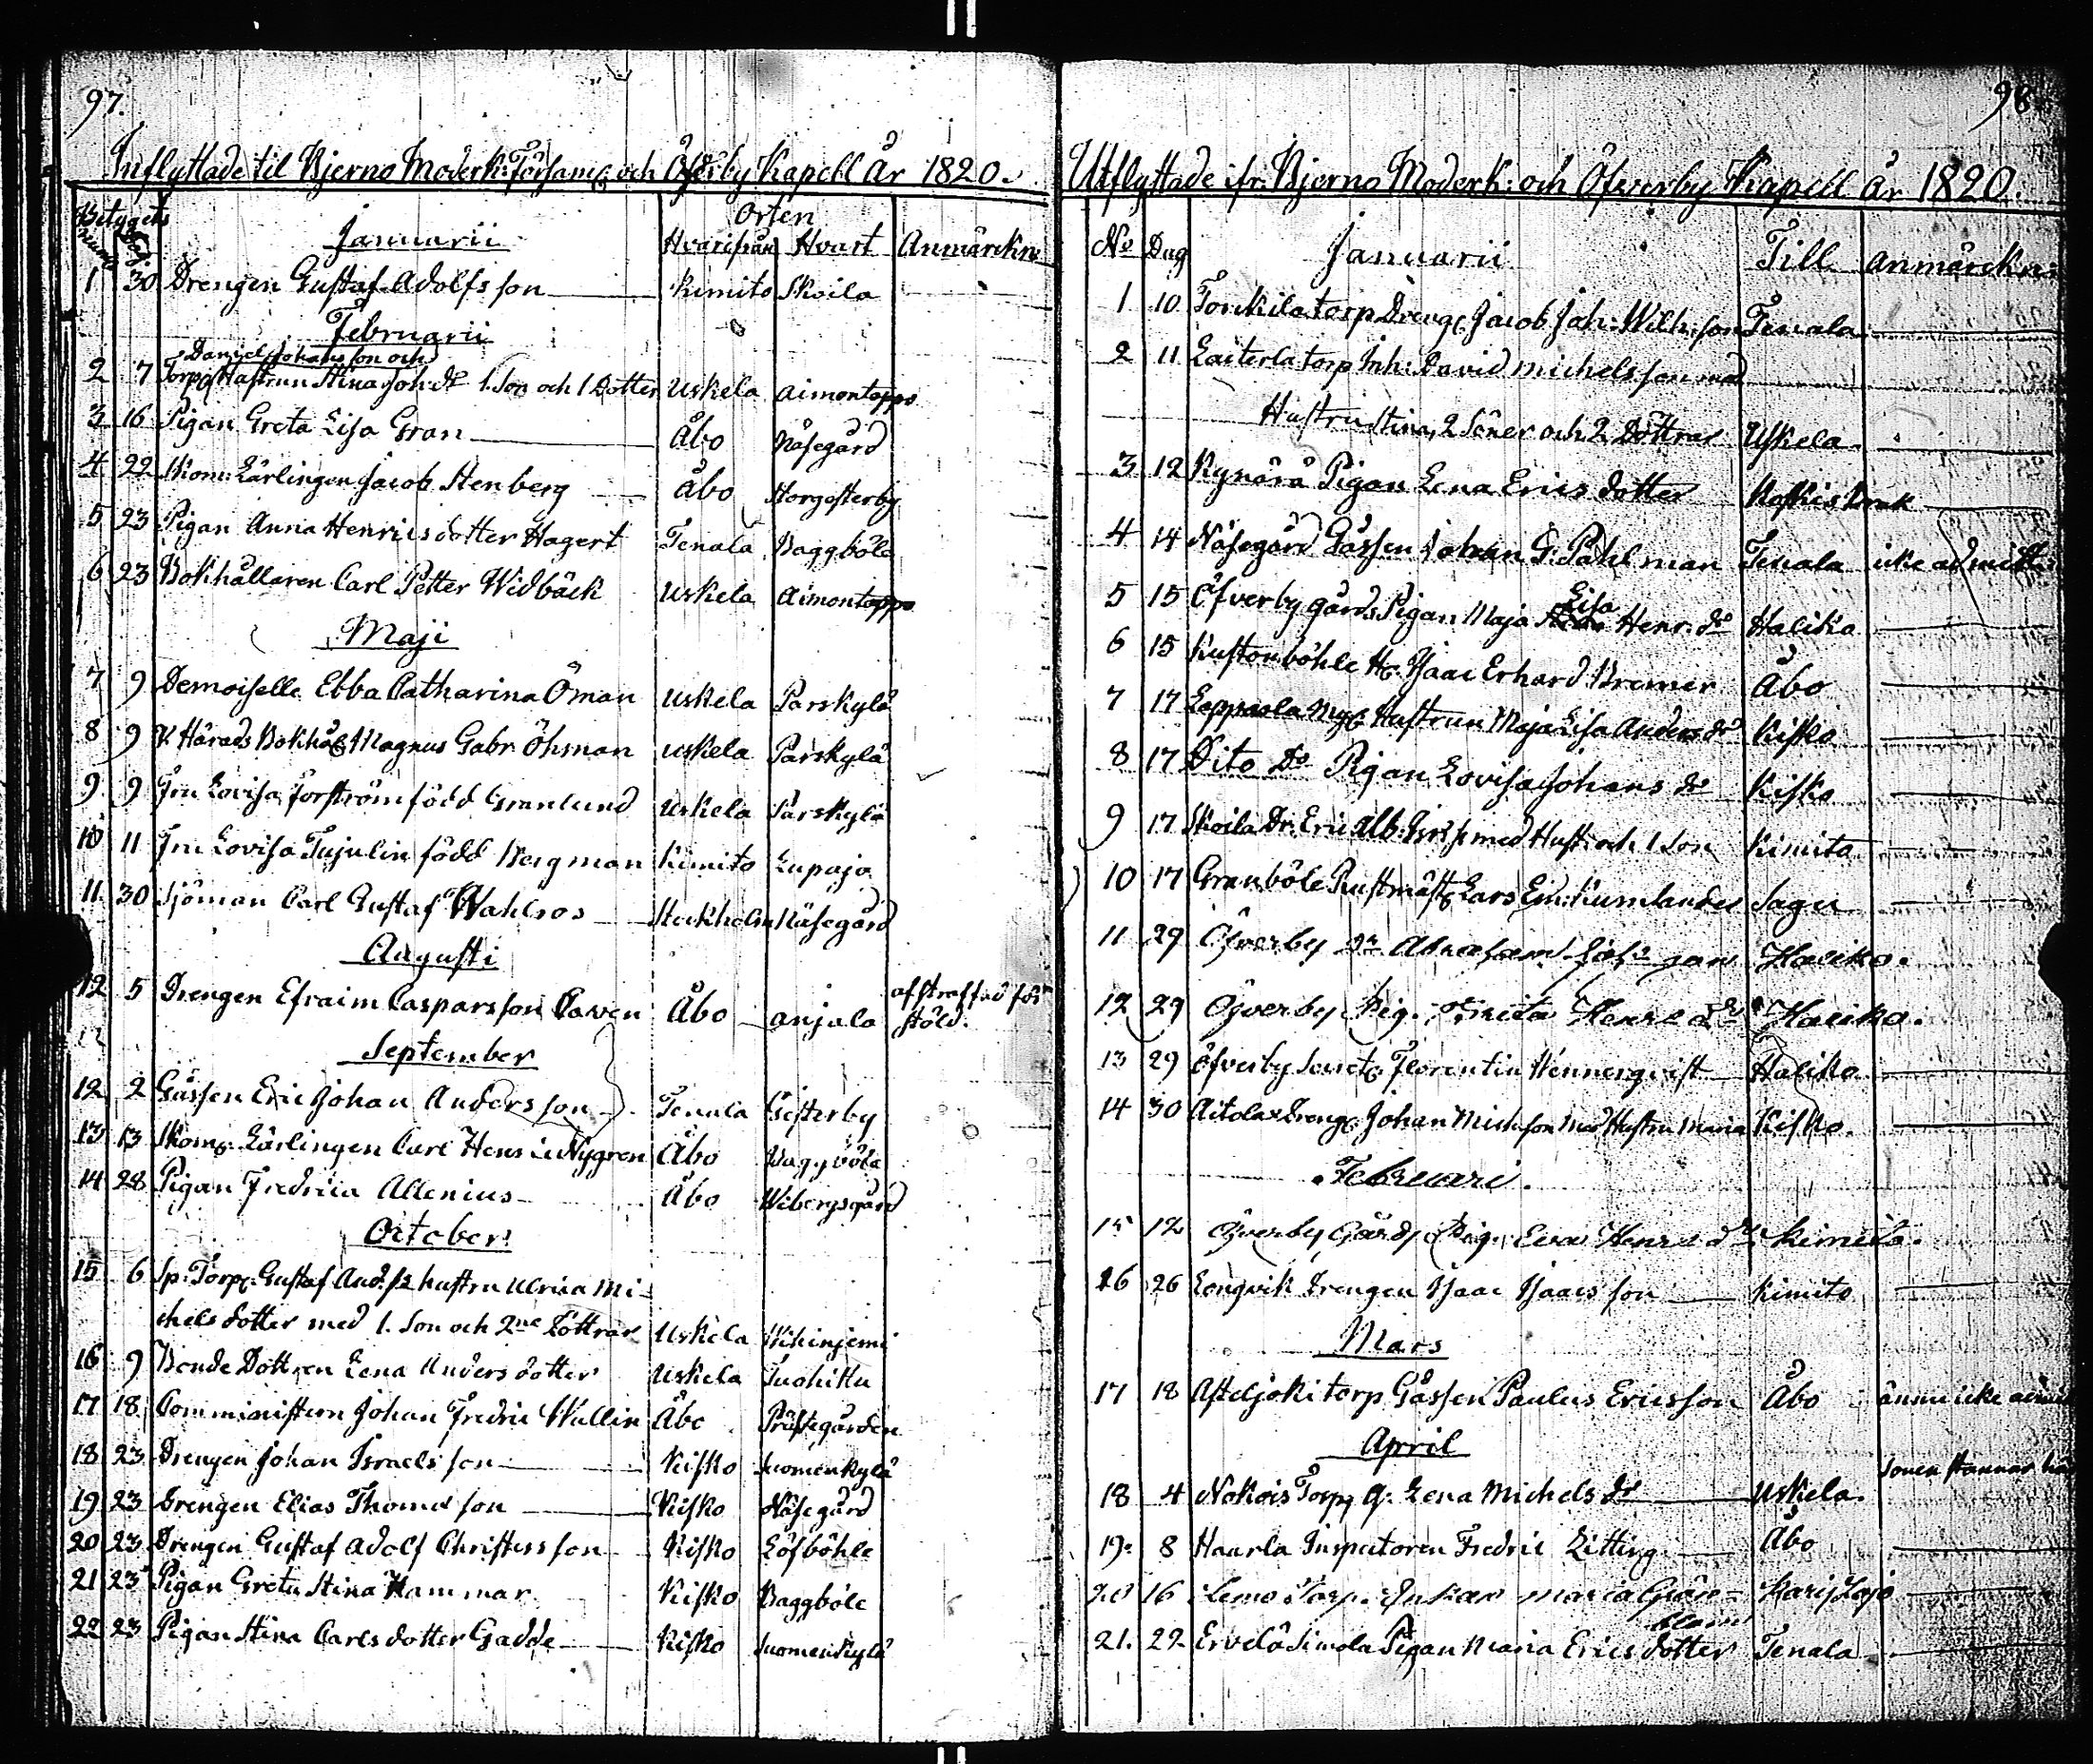 97.
Inflyttade til Bjerno Moderk: Församl och Öfverby Kapell År 1820.
Betygets
num Dag
Januarii
Orten
Hvarifrån Hvart Anmärckn
1 30 Drengen Gustaf Adolfsson Kimito Skoila
Februarii
Daniel Johansson och
2 7 Torp Hustrun Stina Joh dr 1 Son och 1 Dotter Uskela Aimontappo
3 16 Pigan Greta Lisa Gran Åbo Näsegård
4 22 Skom: Lärlingen Jacob Stenberg Åbo Norgesterby
5 23 Pigan Anna Henricsdotter Hagert Tenala Baggböle
6 23 Bokhållaren Carl Petter Widbäck Uskela Aimontappo
Maji
7 9 Demoiselle Ebba Catharina Öman Uskela Parskylä
8 9 V Härads Bokhål Magnus Gabr Öhman Uskela Parskylä
9 9 Fru Lovisa Forström född Granlund Uskela Parskylä
10 11 Fru Lovisa Tujulin född Bergman Kimito Lupaja
11. 30 Sjöman Carl Gustaf Wahlroos Stockholm Näsegård
Augusti
12 5 Drengen Efraim Caspars son Caven Åbo Anjala afstraffad för
stöld.
September
12 2 Gåssen Eric Johan Andersson Tenala Gesterby
13 13 Skom: Lärlingen Carl Henric Nygren Åbo Baggböle
14 28 Pigan Fredrica Allenius Åbo Wibergsgård
October
15 6 Sp. Torp: Gustaf And: ss hustru Ulrica Mi
chelsdotter med 1. Son och 2ne Döttrar Uskela Kihinjemi
16 9 Bonde Dottren Lena Andersdotter Uskela Tuohitu
17 18 Comministern Johan Fredric Wallin Åbo Prästegården
18 23 Drengen Johan Israels son Kisko Suomenkylä
19 23 Drengen Elias Thomas son Kisko Näsegård
20 23 Drengen Gustaf Adolf Christersson Kisko Löfböhle
21 23 Pigan Greta Stina Hammar Kisko Baggböle
22 23 Pigan Stina Carlsdotter Gadde Kisko Suomenkylä
98
Utflyttade ifr: Bjerno Moderk: och Öfverby Kapell År 1820.
No Dag Januarii Till Anmärckn:
1 10 Torkila torp Dreng Jacob Joh: Wilh: son Tenala
2 11 Laiterla torp Inh: David Michelsson med
Hustru Stina, 2 Söner och 2 Döttrar Uskela
3 12 Kynärä Pigan Lena Erics dotter Koskis Bruk
4 14 Näsegård Gåssen Johan G. Pahlman Tenala icke admitt
5 15 Öfverby gårds Pigan Maja Lisa Henr. dr Haliko
6 15 Kustonböhle H Isaac Erhard Bremer Åbo
7 17 Leppaola Nyb Hustrun Maja Lisa Anders dr Kisko
8 17 Dito Do Pigan Lovisa Johans dr Kisko
9 17 Skoila Dr: Eric Alb: med Hust: och 1 Son Kimito
10 17 Granböle Rustmäst Lars Em: Kumlander Sagu
11 29 Öfverby Dr Abraham son Haliko.
12 29 Öfverby Pig. Henr dr Haliko.
13 29 Öfverby Florentin Wennerqvist Haliko
14 30 Aitola Dreng Johan Mich. son med Hustru Maria Kisko.
Februari.
15 12 Öfverby Gårds Pig. Eva Henr dr Kimito.
16 26 Längvik Drengen Isaac Isaacs son Kimito
Mars
17 18 Asteljoki torp Gåssen Paulus Ericsson Åbo ännu icke
April
Sonen stannar
18 4 Nokois Torp Lena Michels dr Uskela.
19. 8 Haarla Inspectoren Fredric Zitting Åbo
20 16 Lemo Torp: Enkan Maria Grön-
blom
Karislojo
21. 22 Ervelä Simola Pigan Maria Ericsdotter Tenala